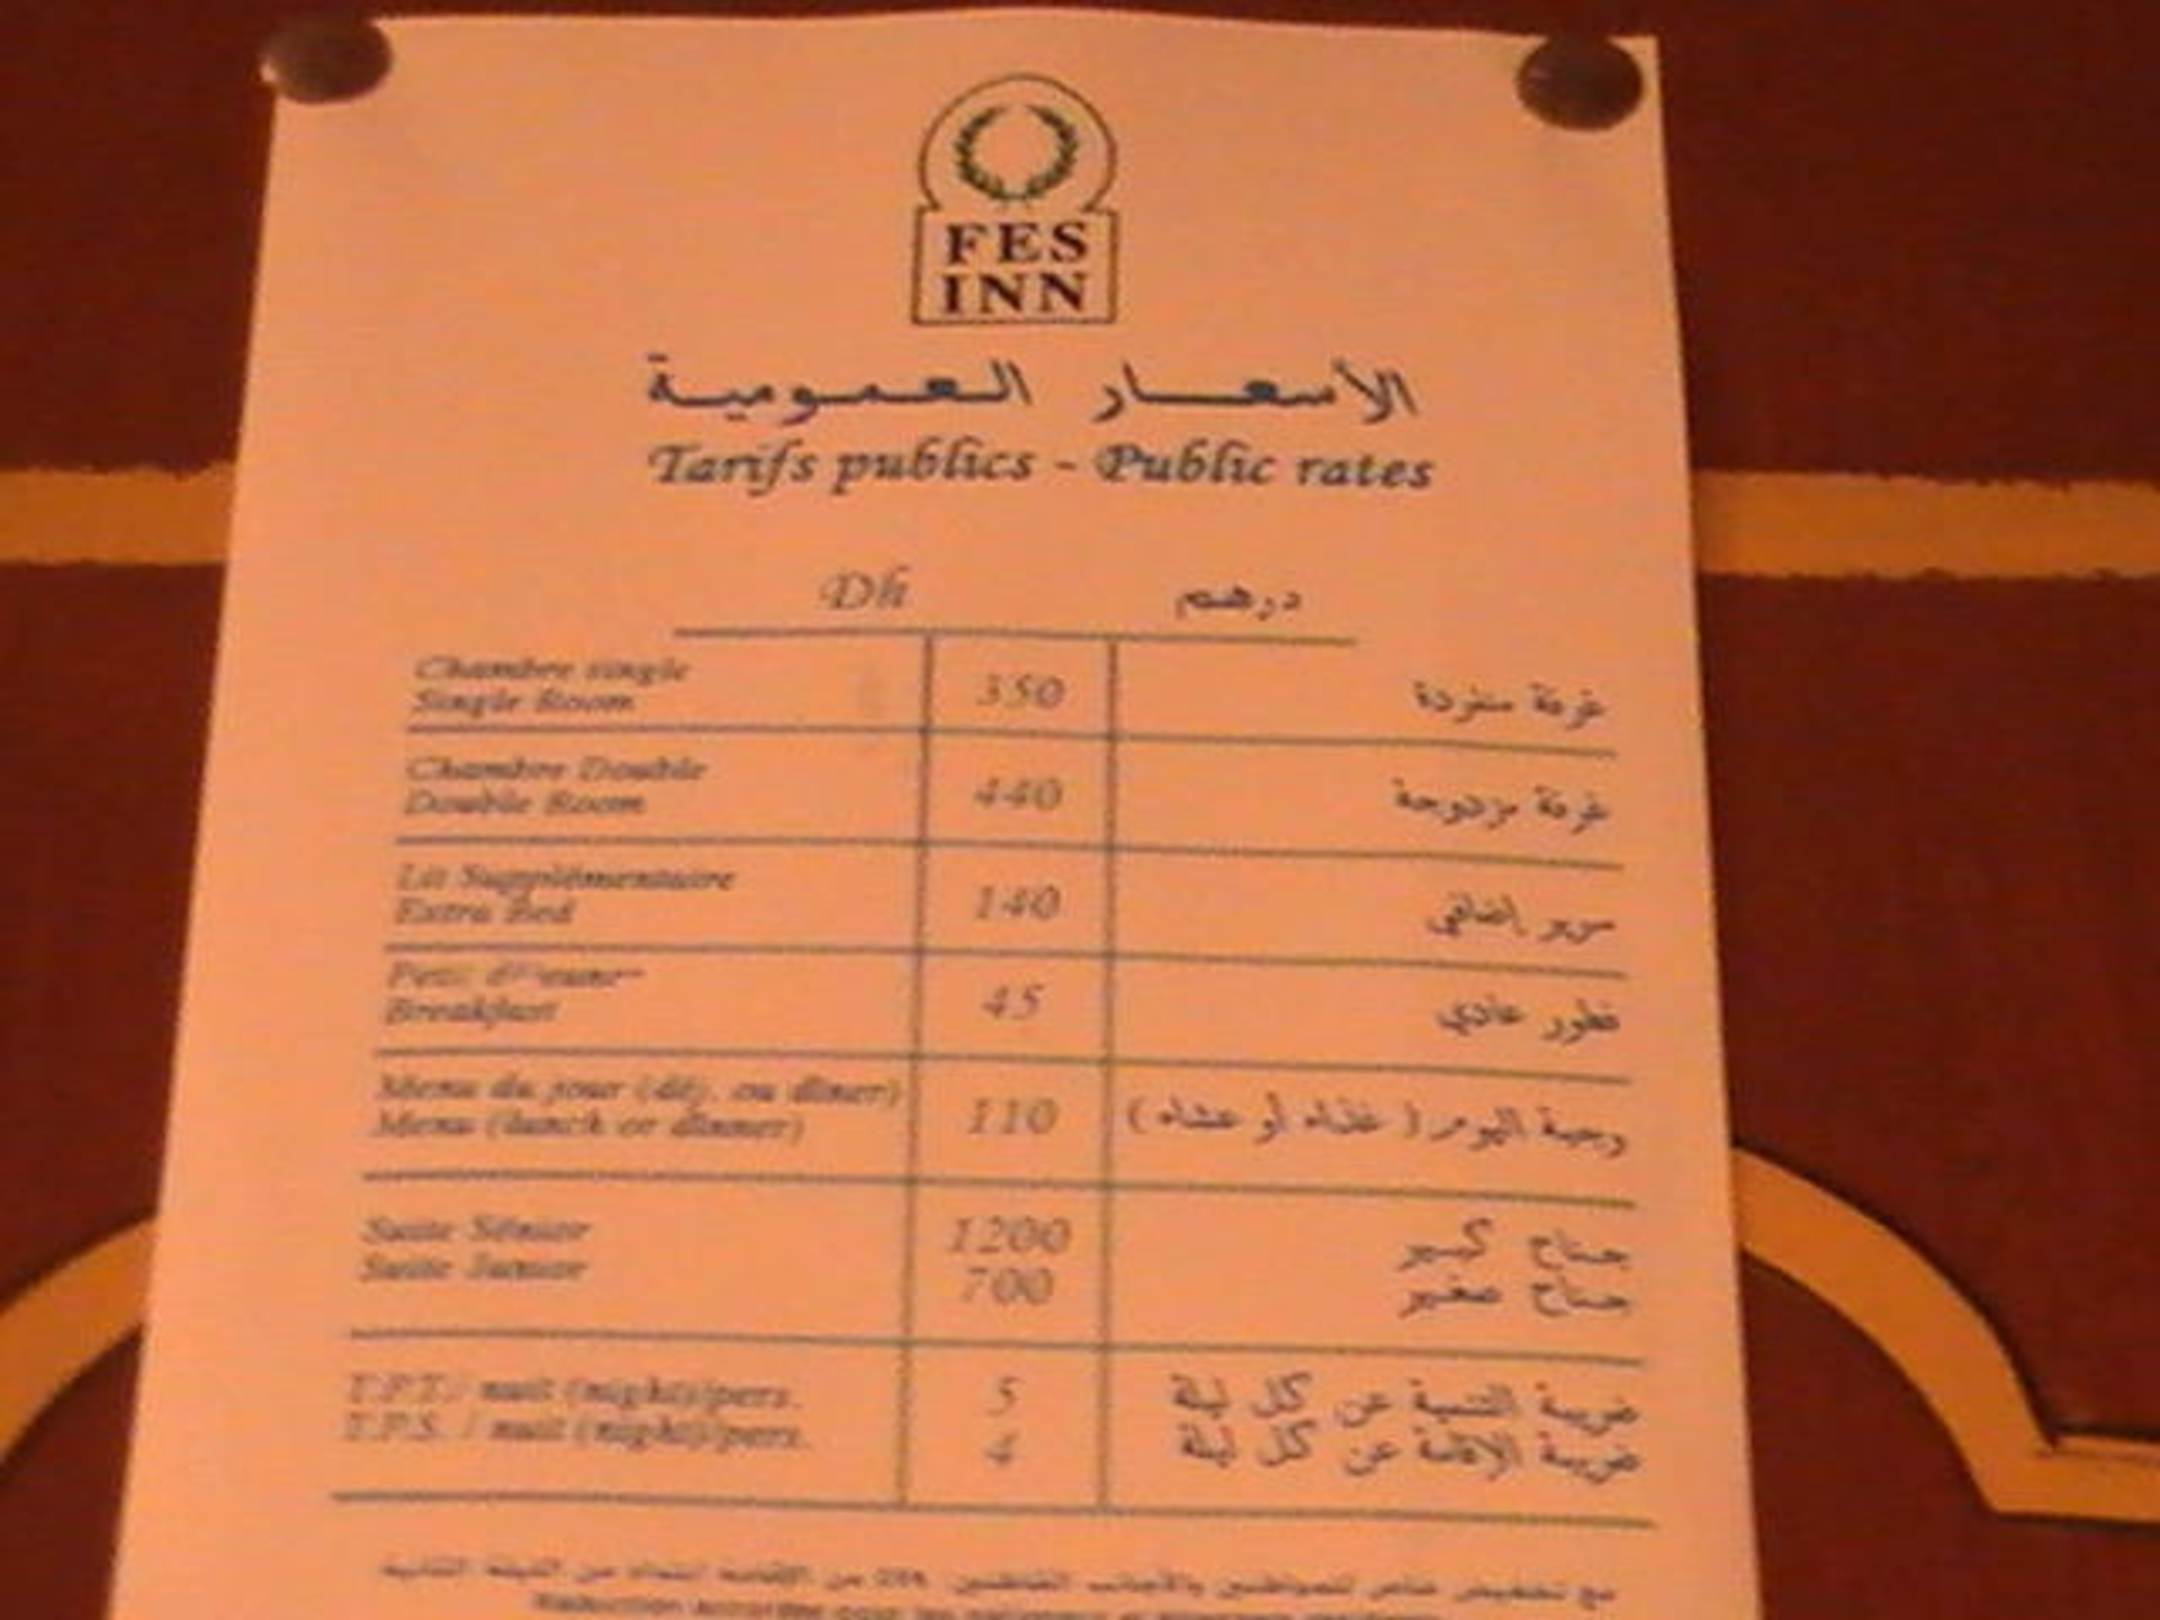 FES
INN
الأسعار العمومية
Tarifs publics - Public rates
Dh درهم
Chambre single
Single Room
350
غرفة منفردة
Chambre Double
Double Room
440
غرفة مزدوجة
Lit Supplémentaire
Extra Bed
140
سرير إضافي
Petit
Breakfast
45
فطور عادي
Menu du jour (déj. ou dîner)
Menu (lunch or dinner)
110
وجبة اليوم ( غذاء أو عشاء )
Suite Sénior
Suite Junior
1200
700
جناح كبير
جناح صغير
T.P.T./ nuit (night)/pers.
T.P.S. / nuit (night)/pers.
5
4
ضريبة التنمية عن كل ليلة
ضريبة الإقامة عن كل ليلة